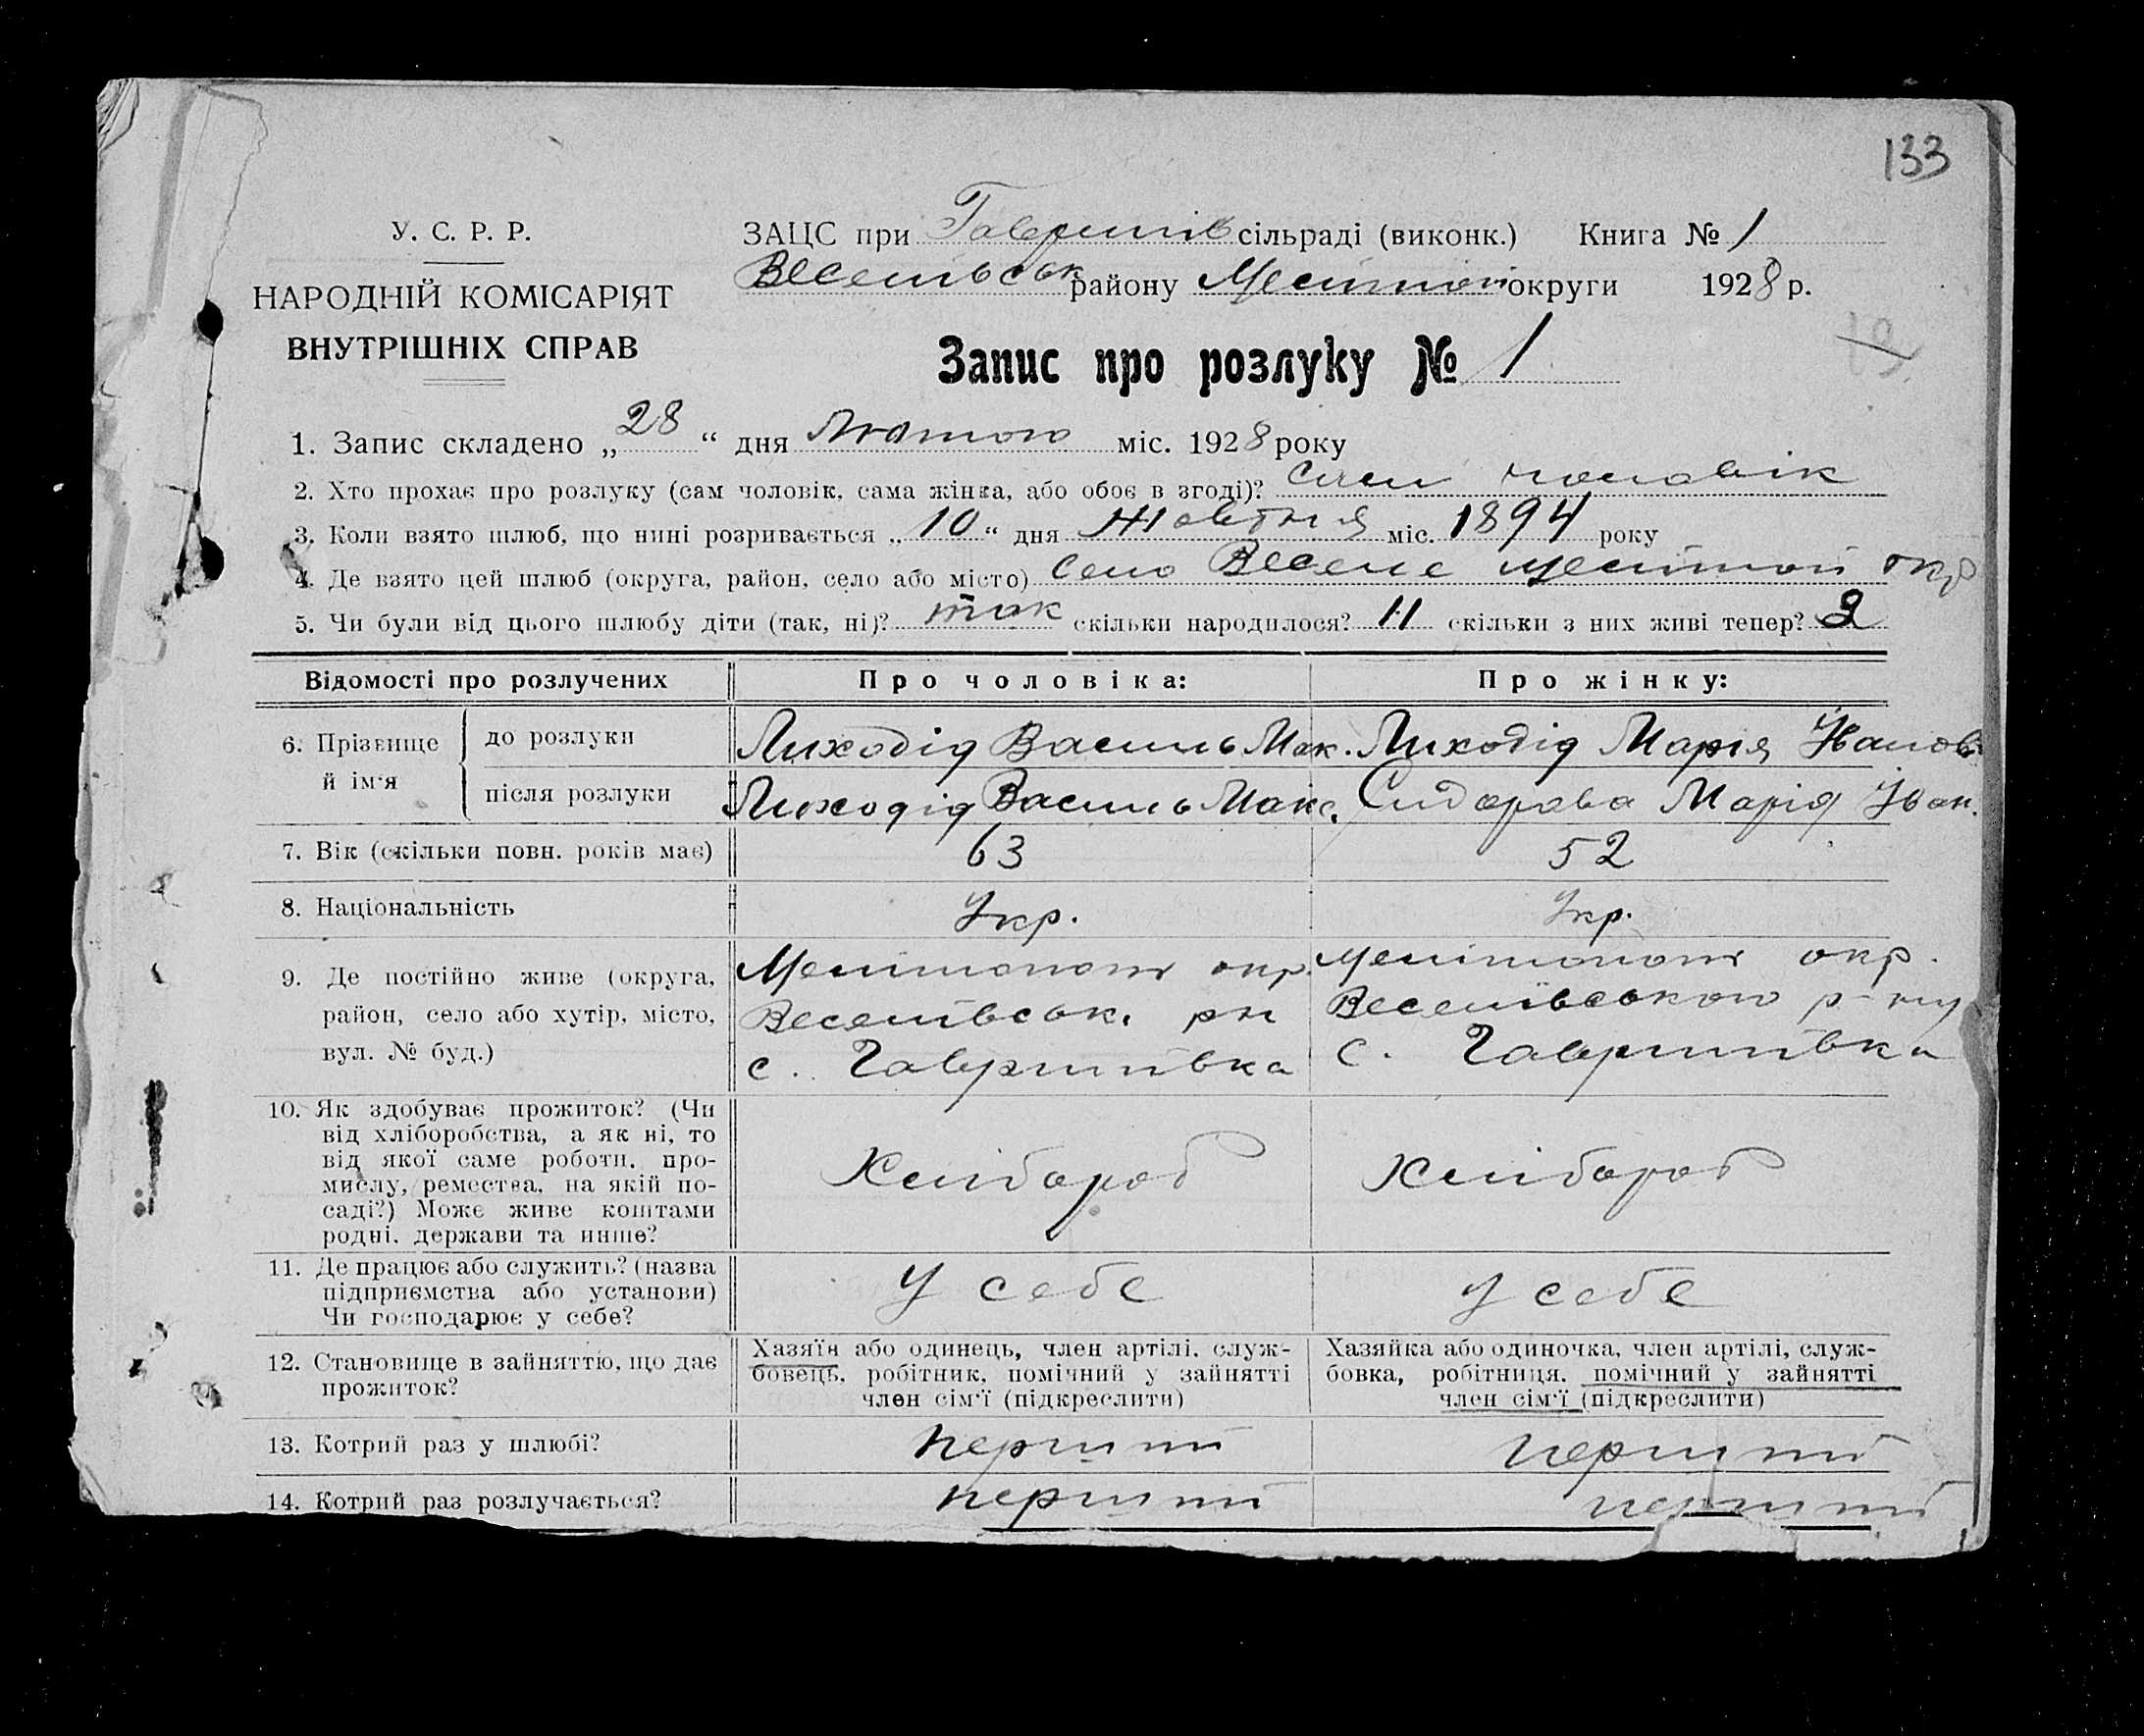 133
У. С. Р. Р.
НАРОДНІЙ КОМІСАРІЯТ
ВНУТРІШНІХ СПРАВ
ЗАЦС при Гавришів сільраді (виконк.) Книга № 1
Веселівськ району Меліто округи 1928 р.
Запис про розлуку № 1
1. Запис складено „28“ дня Лютого міс. 1928 року
2. Хто прохає про розлуку (сам чоловік, сама жінка, або обоє в згоді)? Сам чоловік
3. Коли взято шлюб, що нині розривається „10“ дня Жовтня міс. 1894 року
4. Де взято цей шлюб (округа, район, село або місто) село Веселе окр
5. Чи були від цього шлюбу діти (так, ні)? так скільки народилося? 11 скільки з них живі тепер?
Відомості про розлучених
Про чоловіка:
Про жінку:
6. Прізвище й ім'я
до розлуки
Лиходід Василь Мак.
Лиходід Марія Іванов.
після розлуки
Лиходід Василь Макс.
Сидорова Марія Іван.
7. Вік (скільки повн. років має)
63
52
8. Національність
Укр.
Укр.
9. Де постійно живе (округа,
район, село або хутір, місто,
вул. № буд.)
Мелітопопт окр.
Веселівськ. рн
с. Гавришівка
Мелітопопт окр.
Веселівського р-ну
с. Гавришівка
10. Як здобуває прожиток? (Чи
від хліборобства, а як ні, то
від якої саме роботи, про-
мислу, ремества, на якій по-
саді?) Може живе коштами
родні, держави та инше?
Хлібороб
Хлібороб
11. Де працює або служить? (назва
підприємства або установи)
Чи господарює у себе?
У себе
У себе
12. Становище в зайняттю, що дає
прожиток?
Хазяїн або одинець, член артілі, служ-
бовець, робітник, помічний у зайнятті
член сім'ї (підкреслити)
Хазяйка або одиночка, член артілі, служ-
бовка, робітниця, помічний у зайнятті
член сім'ї (підкреслити)
13. Котрий раз у шлюбі?
перший
перший
14. Котрий раз розлучається?
перший
перший